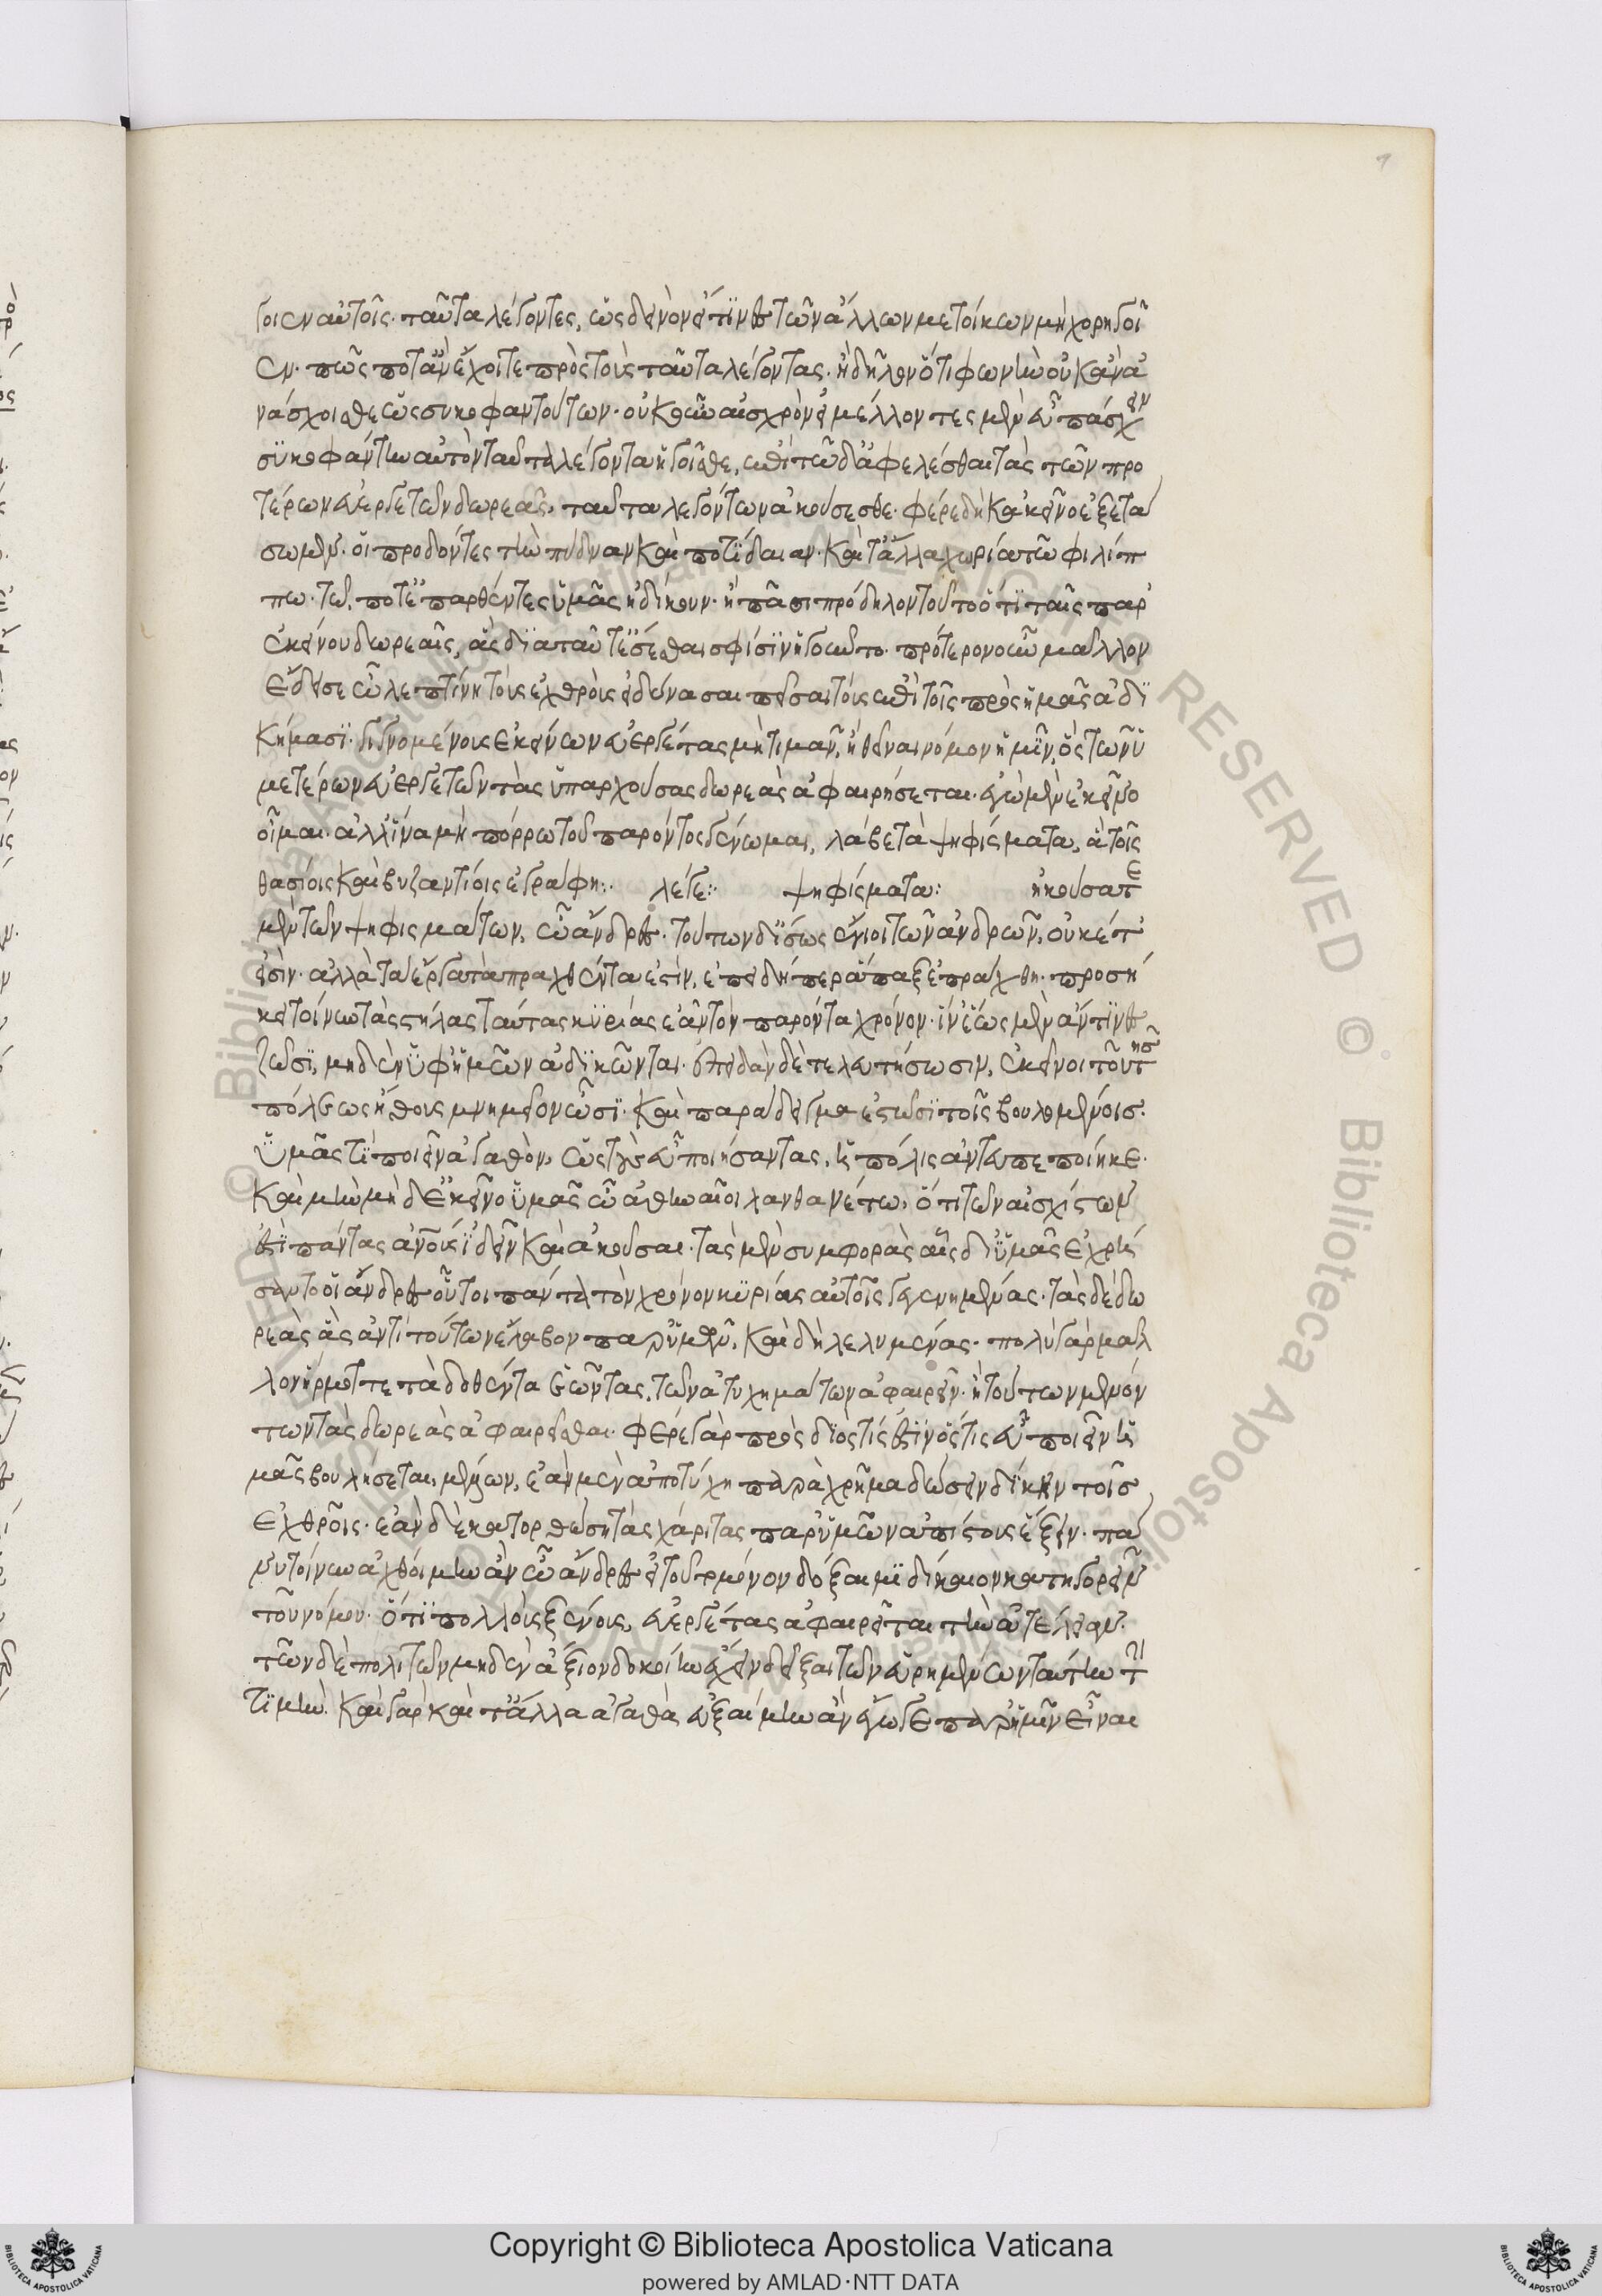 γοιεν αὐτοῖς. ταῦτα λέγοντες, ὡς δεινὸν εἴ τινες τῶν ἄλλων μετοίκων μὴ χορηγοῖ
εν. πῶς ποτ' ἂν ἔχοιτε πρὸς τοὺς ταῦτα λέγοντας. ἢ δῆλον ὅτι φωνὴν οὐκ ἂν ἀ
νάσχοισθε ὡς συκοφαντούντων. οὐκοῦν αἰσχρὸν εἰ μέλλοντες μὲν εὖ πάσχειν
συκοφάντην ἂν τὸν ταῦτα λέγοντα ἡγοῖσθε, ἐπὶ τῷ δ' ἀφελέσθαι τὰς τῶν προ
τέρων εὐεργετῶν δωρεὰς, ταῦτα λεγόντων ἀκούσεσθε. φέρε δὴ κἀκεῖνο ἐξετά
σωμεν. οἱ προδόντες τὴν πύδναν καὶ ποτίδαιαν. καὶ τἄλλα χωρία τῷ φιλίπ
πω. τῷ ποτ' ἐπαρθέντες ὑμᾶς ἠδίκουν. ἢ πᾶσι πρόδηλον τοῦτο ὅτι ταῖς παρ'
ἐκείνου δωρεαῖς, ἃς διὰ ταῦτ' ἔσεσθαι σφίσιν ἡγοῦντο. πότερον οὖν μᾶλλον
ἔδει σε ὦ λεπτίνη τοὺς ἐχθροὺς εἰ δύνασαι πεῖσαι τοὺς ἐπὶ τοῖς πρὸς ἡμᾶς ἀδι
κήμασι. γιγνομένους ἐκείνων εὐεργέτας μὴ τιμᾶν, ἢ θεῖναι νόμον ἡμῖν, ὃς τῶν ὑ
μετέρων εὐεργετῶν τὰς ὑπαρχούσας δωρεὰς ἀφαιρήσεται. ἐγὼ μὲν ἐκεῖνο
οἶμαι. ἀλλ' ἵνα μὴ πόρρω τοῦ παρόντος γένωμαι, λάβε τὰ ψηφίσματα, ἃ τοῖς
θασίοις καὶ βυζαντίοις ἐγράφη:. λέγε:. ψηφίσματα: ἠκούσατε
μὲν τῶν ψηφισμάτων, ὦ ἄνδρες. τούτων δ' ἴσως ἔνιοι τῶν ἀνδρῶν, οὐκέτ'
εἰσίν. ἀλλὰ τὰ ἔργα τὰ πραχθέντα ἐστὶν, ἐπειδήπερ ἅπαξ ἐπράχθη. προσή
κει τοίνυν τὰς στήλας ταύτας κυρίας ἐᾶν τὸν παρόντα χρόνον. ἵν' ἕως μὲν ἄν τινες
ζῶσι, μηδὲν ὑφ' ἡμῶν ἀδικῶνται. ἐπειδὰν δὲ τελευτήσωσιν, ἐκεῖνοι τοῦ τῆσ
πόλεως ἤθους μνημεῖον ὦσι. καὶ παράδειγμα ἑστῶσι τοῖς βουλομένοισ.
ὑμᾶς τι ποιεῖν ἀγαθὸν, ὡς τοὺς εὖ ποιήσαντας, ἡ πόλις ἀντευπεποίηκε.
καὶ μὴν μὴδ' ἐκεῖνο ὑμᾶς ὦ ἀθηναῖοι λανθανέτω, ὅτι τῶν αἰσχίστων
ἐστὶ πάντας ἀν̅ους ἰδεῖν καὶ ἀκοῦσαι. τὰς μὲν συμφορὰς αἷς δι' ὑμᾶς ἐχρή
σαντο οἱ ἄνδρες οὗτοι πάντα τὸν χρόνον κυρίας αὐτοῖς γεγενημένας. τὰς δὲ δω
ρεὰς ἃς ἀντὶ τούτων ἔλαβον παρ' ὑμῶν, καὶ δὴ λελυμένας. πολὺ γὰρ μᾶλ
λον ἥρμοττε τὰ δοθέντα ἐῶντας, τῶν ἀτυχημάτων ἀφαιρεῖν. ἢ τούτων μενόν
των τὰς δωρεὰς ἀφαιρεῖσθαι. φέρε γὰρ πρὸς διὸς τίς ἐστὶν ὅστις εὖ ποιεῖν ὑ
μᾶς βουλήσεται, μέλλων, ἐὰν μὲν ἀποτύχῃ παραχρῆμα δώσειν δίκην τοῖσ
ἐχθροῖς. ἐὰν δὲ κατορθώσῃ τὰς χάριτας παρ' ὑμῶν ἀπίστους ἕξειν. πά
νυ τοίνυν ἀχθοίμην ἂν ὦ ἄνδρες εἰ τοῦτο μόνον δόξαιμι δίκαιον κατηγορεῖν
τοῦ νόμου. ὅτι πολλοὺς ξένους, εὐεργέτας ἀφαιρεῖται τὴν ἀτέλειαν.
τῶν δὲ πολιτῶν μηδέν' ἄξιον δοκοίην ἔχειν δεῖξαι τῶν εὑρημένων ταύτην τὴ
τιμὴν. καὶ γὰρ καὶ τἄλλα ἀγαθὰ εὐξαίμην ἂν ἔγωγε παρ' ἡμῖν εἶναι
Copyright © Biblioteca Apostolica Vaticana
powered by AMLAD·NTT DATA